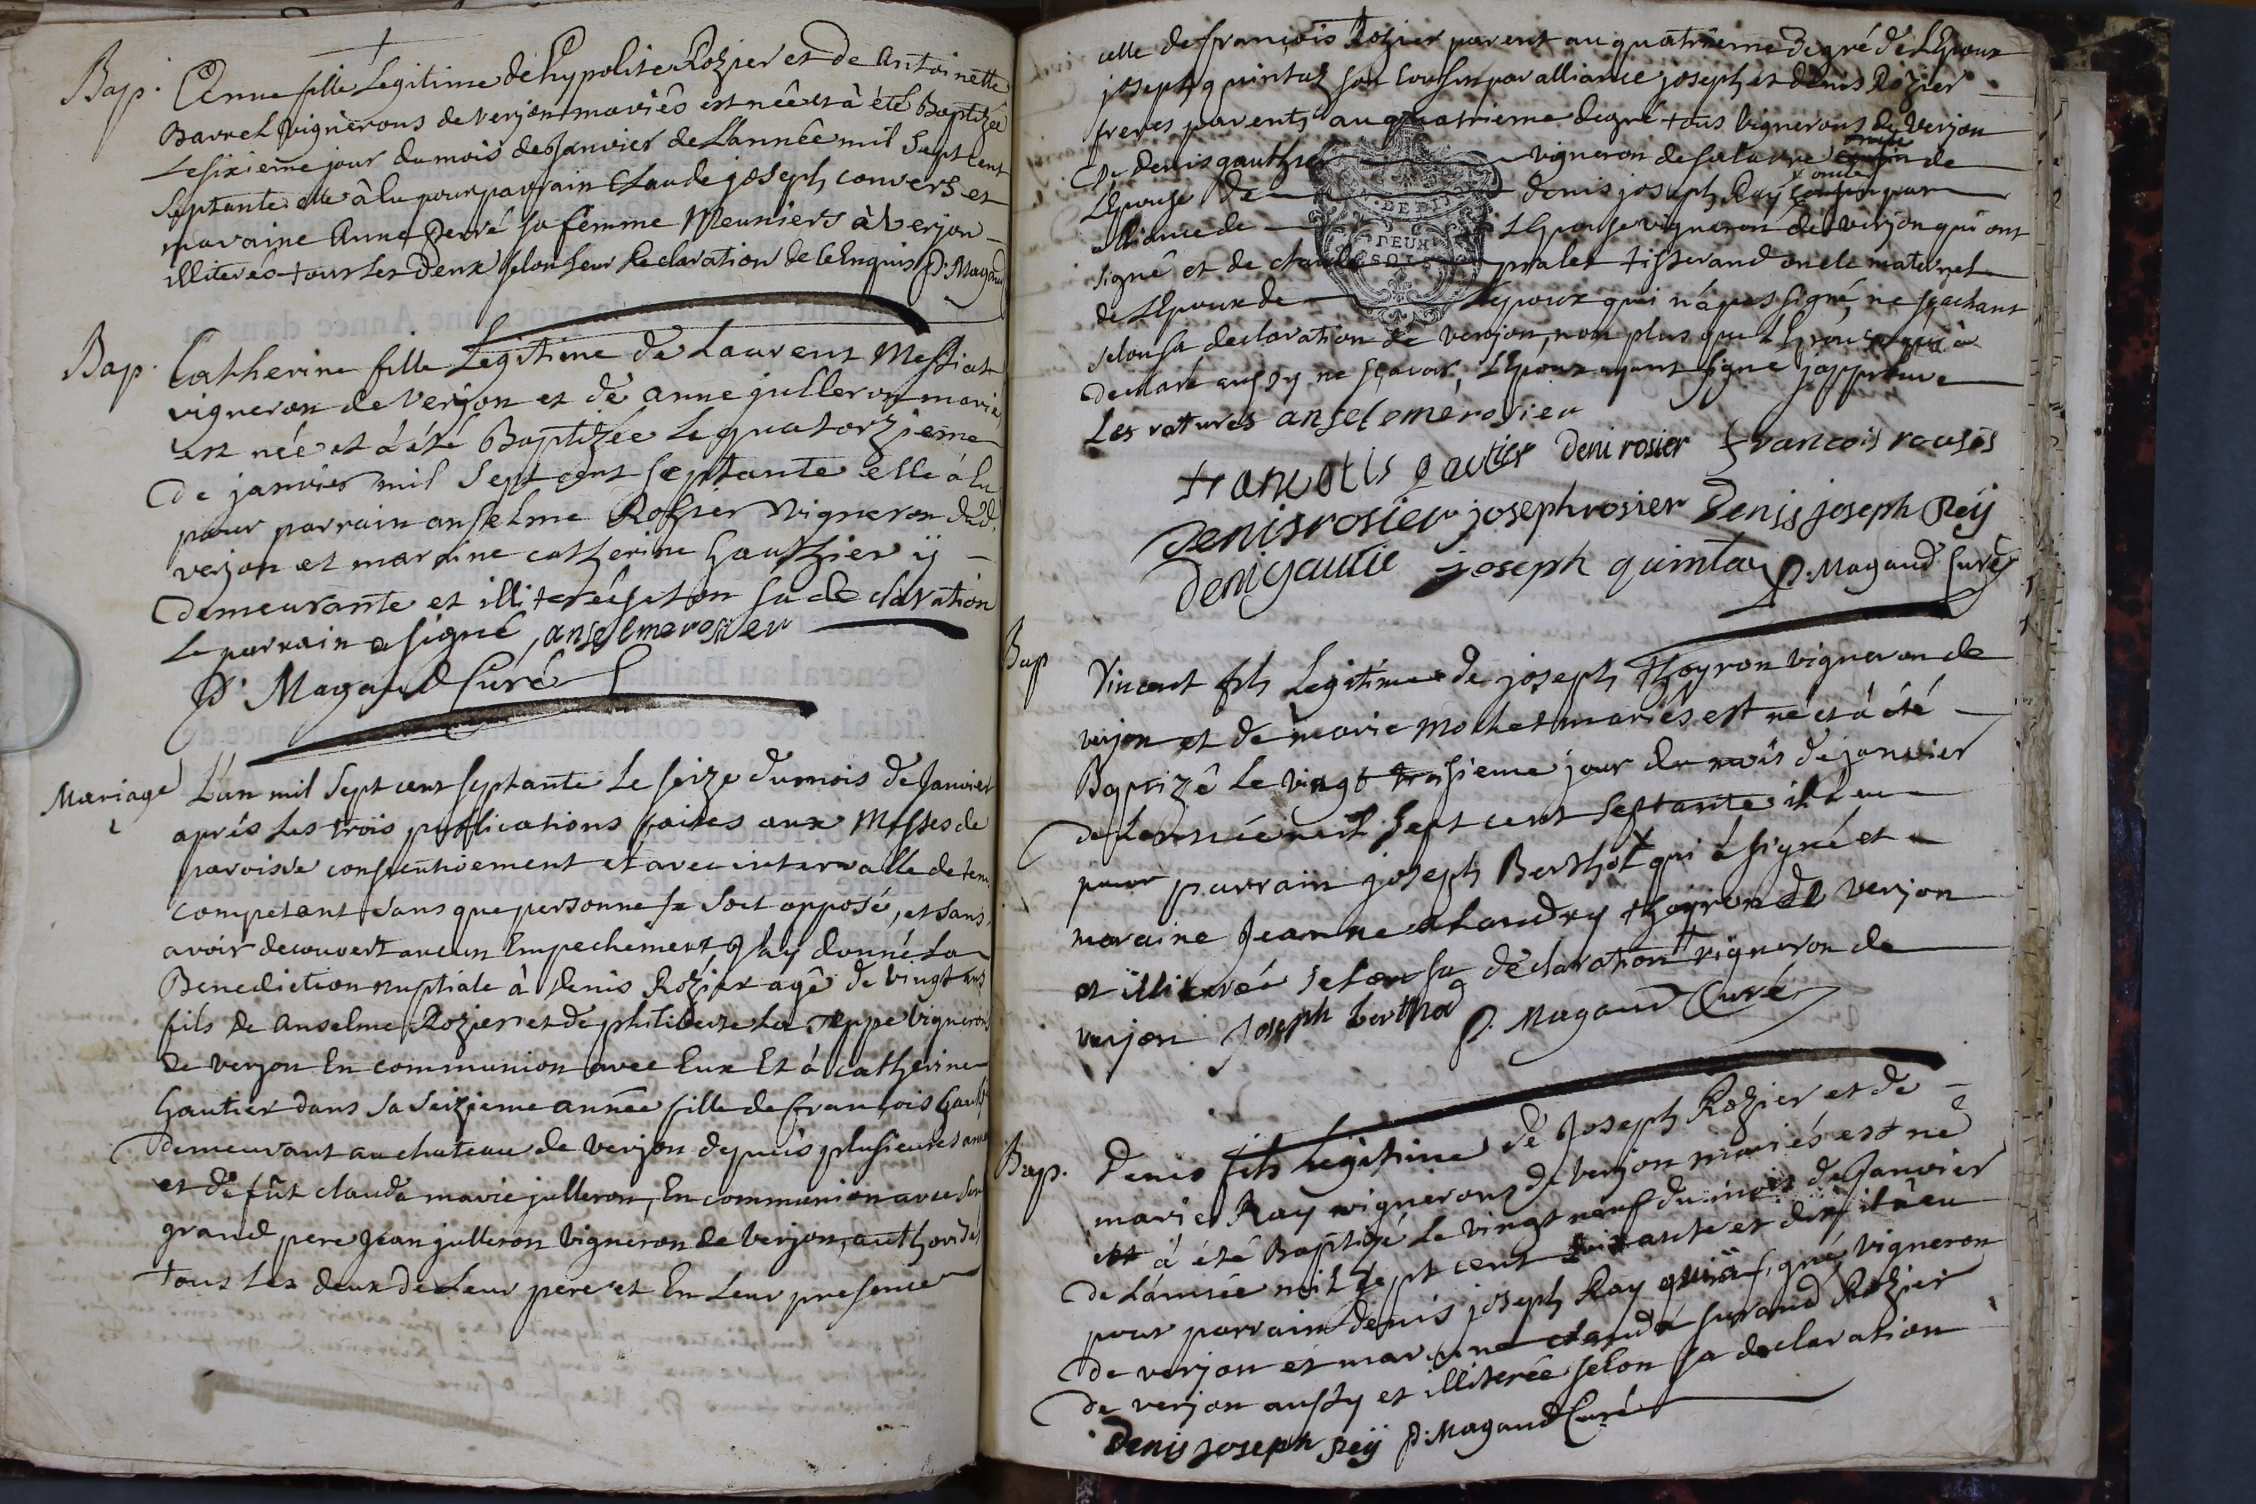 Bap. Anne fille Legitime de hypolite Rozier et de Antoinette
Barrel vignerons de verjon mariés est née et à été Baptizée
Le sixieme jour du mois de Janvier de L'année mil sept cent
septante elle à lu pour parrain Claude joseph convers et
maraine Anne Perré sa femme Meuniers à Verjon
illiterés tous les deux selon leur declaration de ce Enquis P. Magaud
Bap. Catherine fille Legitime de Laurent Messiat
vigneron de Verjon et de anne julleron mariés
est née et à été Baptizée le quatorzieme
de janvier mil sept cent septante elle à lu
pour parrain anselme Rozier vigneron dud.
verjon et maraine catherine Gauthier ij
demeurante et illiterée selon sa declaration
Le parrain a signé, anselmerosier
P. Magaud Curé
Mariage L'an mil sept cent septante le seize du mois de Janvier
aprés les trois publications faites aux Messes de
paroisse consecutivement et avec intervalle de tems
competant sans que personne se soit opposé, et sans
avoir decouvert aucun Empechement, J'ay donné la
Benediction nuptiale à Denis Rozier agé de vingt ans
fils de Anselme Rozier et de philiberte La Teppe vignerons
de verjon En communion avec Eux Et à catherine
Gautier dans sa seizieme année fille de françois Gauthier
demeurant au chateau de verjon depuis plusieures années
et de fût claude marie julleron, En communion avec son
grand pere Jean julleron vigneron de Verjon, authorisés
tous les deux de Leur pere et En Leur presence
celle de françois Rozier parent au quatrieme degré de L'Epoux
joseph quintaz son cousin par alliance joseph et denis Rozier
freres parents au quatrieme degré tous vignerons de Verjon
De denis gauthier vigneron de salavre oncle cousin de
L'Epouse De denis joseph Ray oncle cousin par
alliance de L'Epouse vigneron de verjon qui ont
signé et de claude malet tisserand oncle maternel
DEBIT
DEUX
SOLS
de L'Epoux de L'epoux qui n'a pas signé, ne sçachant
selon sa declaration de verjon, non plus que L'Epouse qui a
declaré aussy ne sçavoir, L'Epoux ayant signé j'approuve
Les ratures anselmerosier
francois gautier Deni rosier francois rousés
Denisrosier josephrosier Denis joseph Reÿ
Denigautie joseph quinta P. Magaud Curé
Bap Vincent fils Legitime de joseph thoyron vigneron de
verjon et de marie Mochet mariés est né et à été
Baptizé le vingt troisieme jour du mois de janvier
de L'année mil sept cent septante il à eu
pour parrain joseph Berthot qui à signé et
maraine Jeanne claudry thoyron de verjon
et illiterée selon sa declaration vigneron de
verjon Joseph bertho P. Magaud Curé
Bap. Denis fils Legitime de Joseph Rozier et de
marie Ray vignerons de Verjon mariés est né
et à été Baptizé le vingt neuf du mois de Janvier
de L'année mil sept cent soixante et dix il à eu
pour parrain Denis joseph Ray qui à signé vigneron
de verjon et maraine claudâ surand Rozier
de verjon aussy et illiterée selon sa declaration
Denis joseph Reÿ P. Magaud Curé